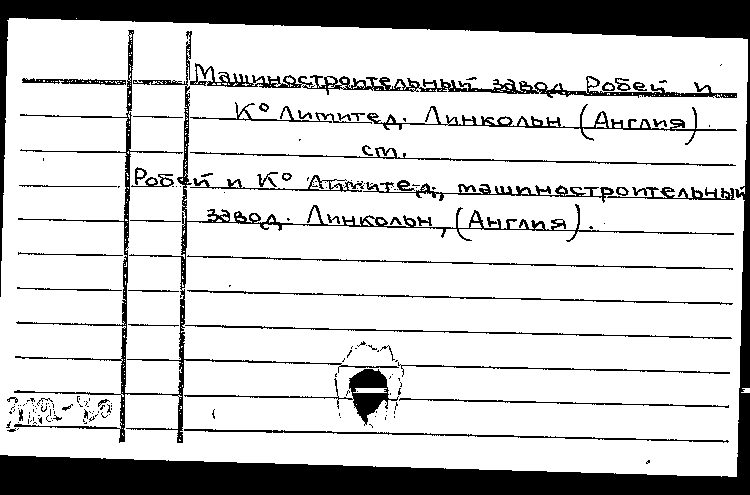 Машиностроительный завод Робей и
К° Лимитед. Линкольн (Англия)
ст.
Робей и К° Лимитед, машиностроительный
завод. Линкольн, (Англия).